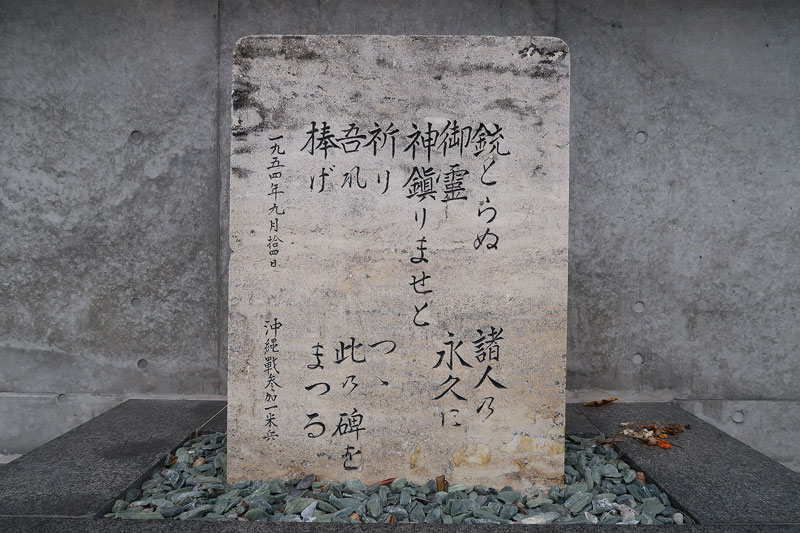 銃とらぬ 諸人の
御靈 永久に
神鎭りませと
祈り つゝ
吾れ 此の碑を
棒げ まつる
一九五四年九月拾四日 沖繩戰参加一米兵